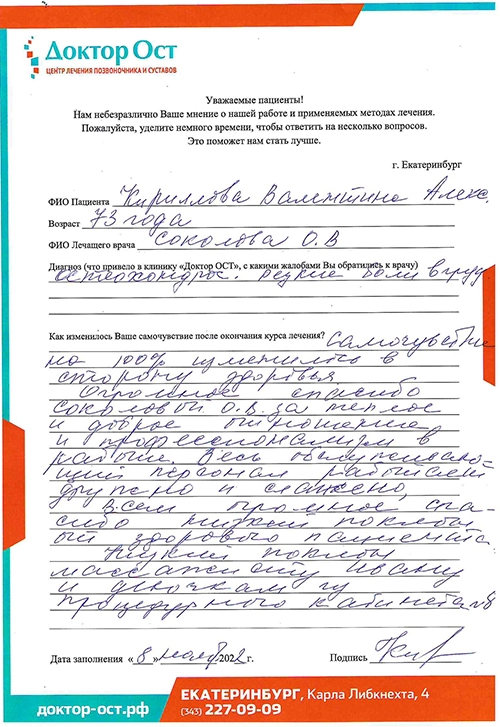 Доктор Ост
ЦЕНТР ЛЕЧЕНИЯ ПОЗВОНОЧНИКА И СУСТАВОВ
Уважаемые пациенты!
Нам небезразлично Ваше мнение о нашей работе и применяемых методах лечения.
Пожалуйста, уделите немного времени, чтобы ответить на несколько вопросов.
Это поможет нам стать лучше.
г. Екатеринбург
ФИО Пациента Кириллова Валентина Алекс.
Возраст 73 года
ФИО Лечащего врача Соколова О.В
Диагноз (что привело в клинику «Доктор ОСТ», с какими жалобами Вы обратились к врачу)
Остеохондроз. Резкие боли в груд
Как изменилось Ваше самочувствие после окончания курса лечения? Самочувствие
на 100% изменилось в
сторону здоровья
Огромное спасибо
Соколовой О.В. за теплое
и доброе отношение
и профессионализм в
работе. Весь обслуживаю-
щий персонал работает
дружно и слажено,
Всем огромное спа-
сибо низкий поклон
от здорового пациента.
Низкий поклон
массажисту Ивану
и девочкам из
процедурного кабинета
Дата заполнения «8» 2022 г. Подпись
доктор-ост.рф
ЕКАТЕРИНБУРГ, Карла Либкнехта, 4
(343) 227-09-09